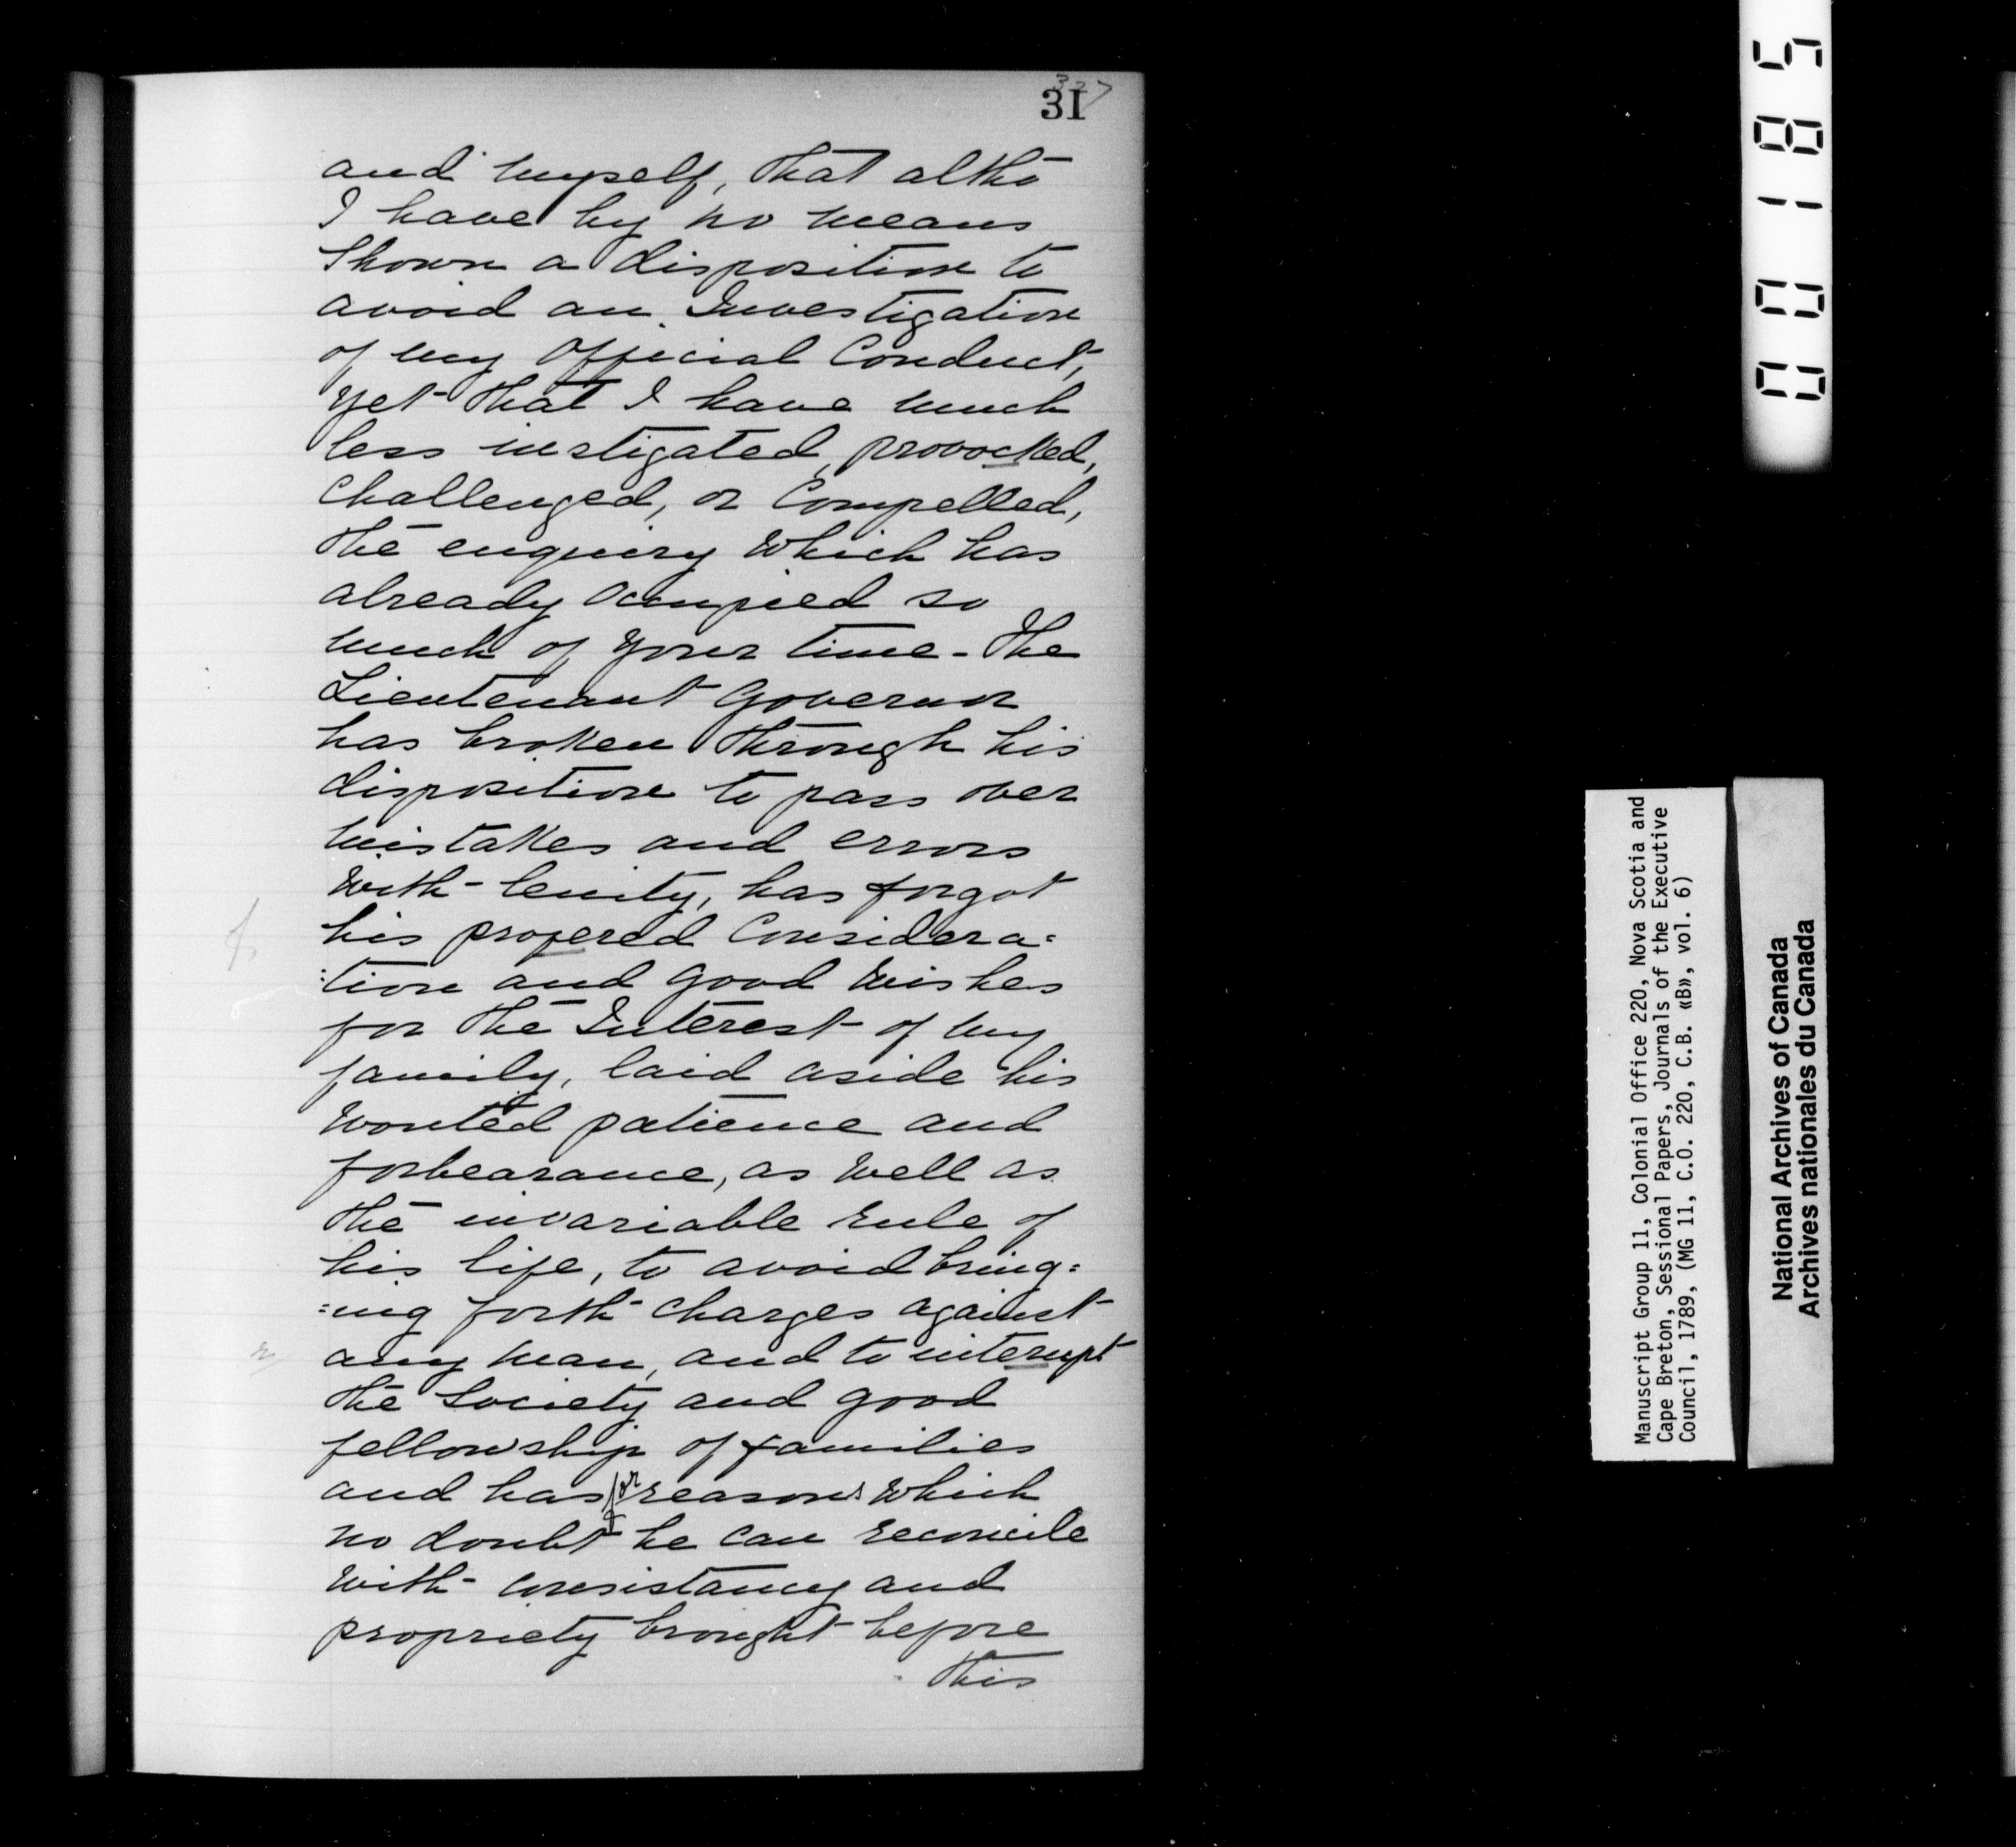 327
31
and myself, that altho
I have by no means
Shown a disposition to
avoid an Investigation
of my Official Conduct,
yet that I have much
less instigated, provocked,
Challenged, or Compelled,
the enquiry which has
already occupied so
much of your time - The
Lieutenant Governor
has broken through his
disposition to pass over
mistakes and errors
with lenity, has forgot
his profered Considera=
=tion and good wishes
for the Interest of my
family, laid aside his
wonted patience and
forbearance, as well as
the invariable rule of
his life, to avoid bring=
=ing forth charges against
any man, and to interupt
the Society and good
fellowship of families
and has for reasons which
no doubt he can reconcile
with consistancy and
propriety brought before
this
00185
Manuscript Group 11, Colonial Office 220, Nova Scotia and
Cape Breton, Sessional Papers, Journals of the Executive
Council, 1789, (MG 11, C.O. 220, C.B. «B», vol. 6)
National Archives of Canada
Archives nationales du Canada